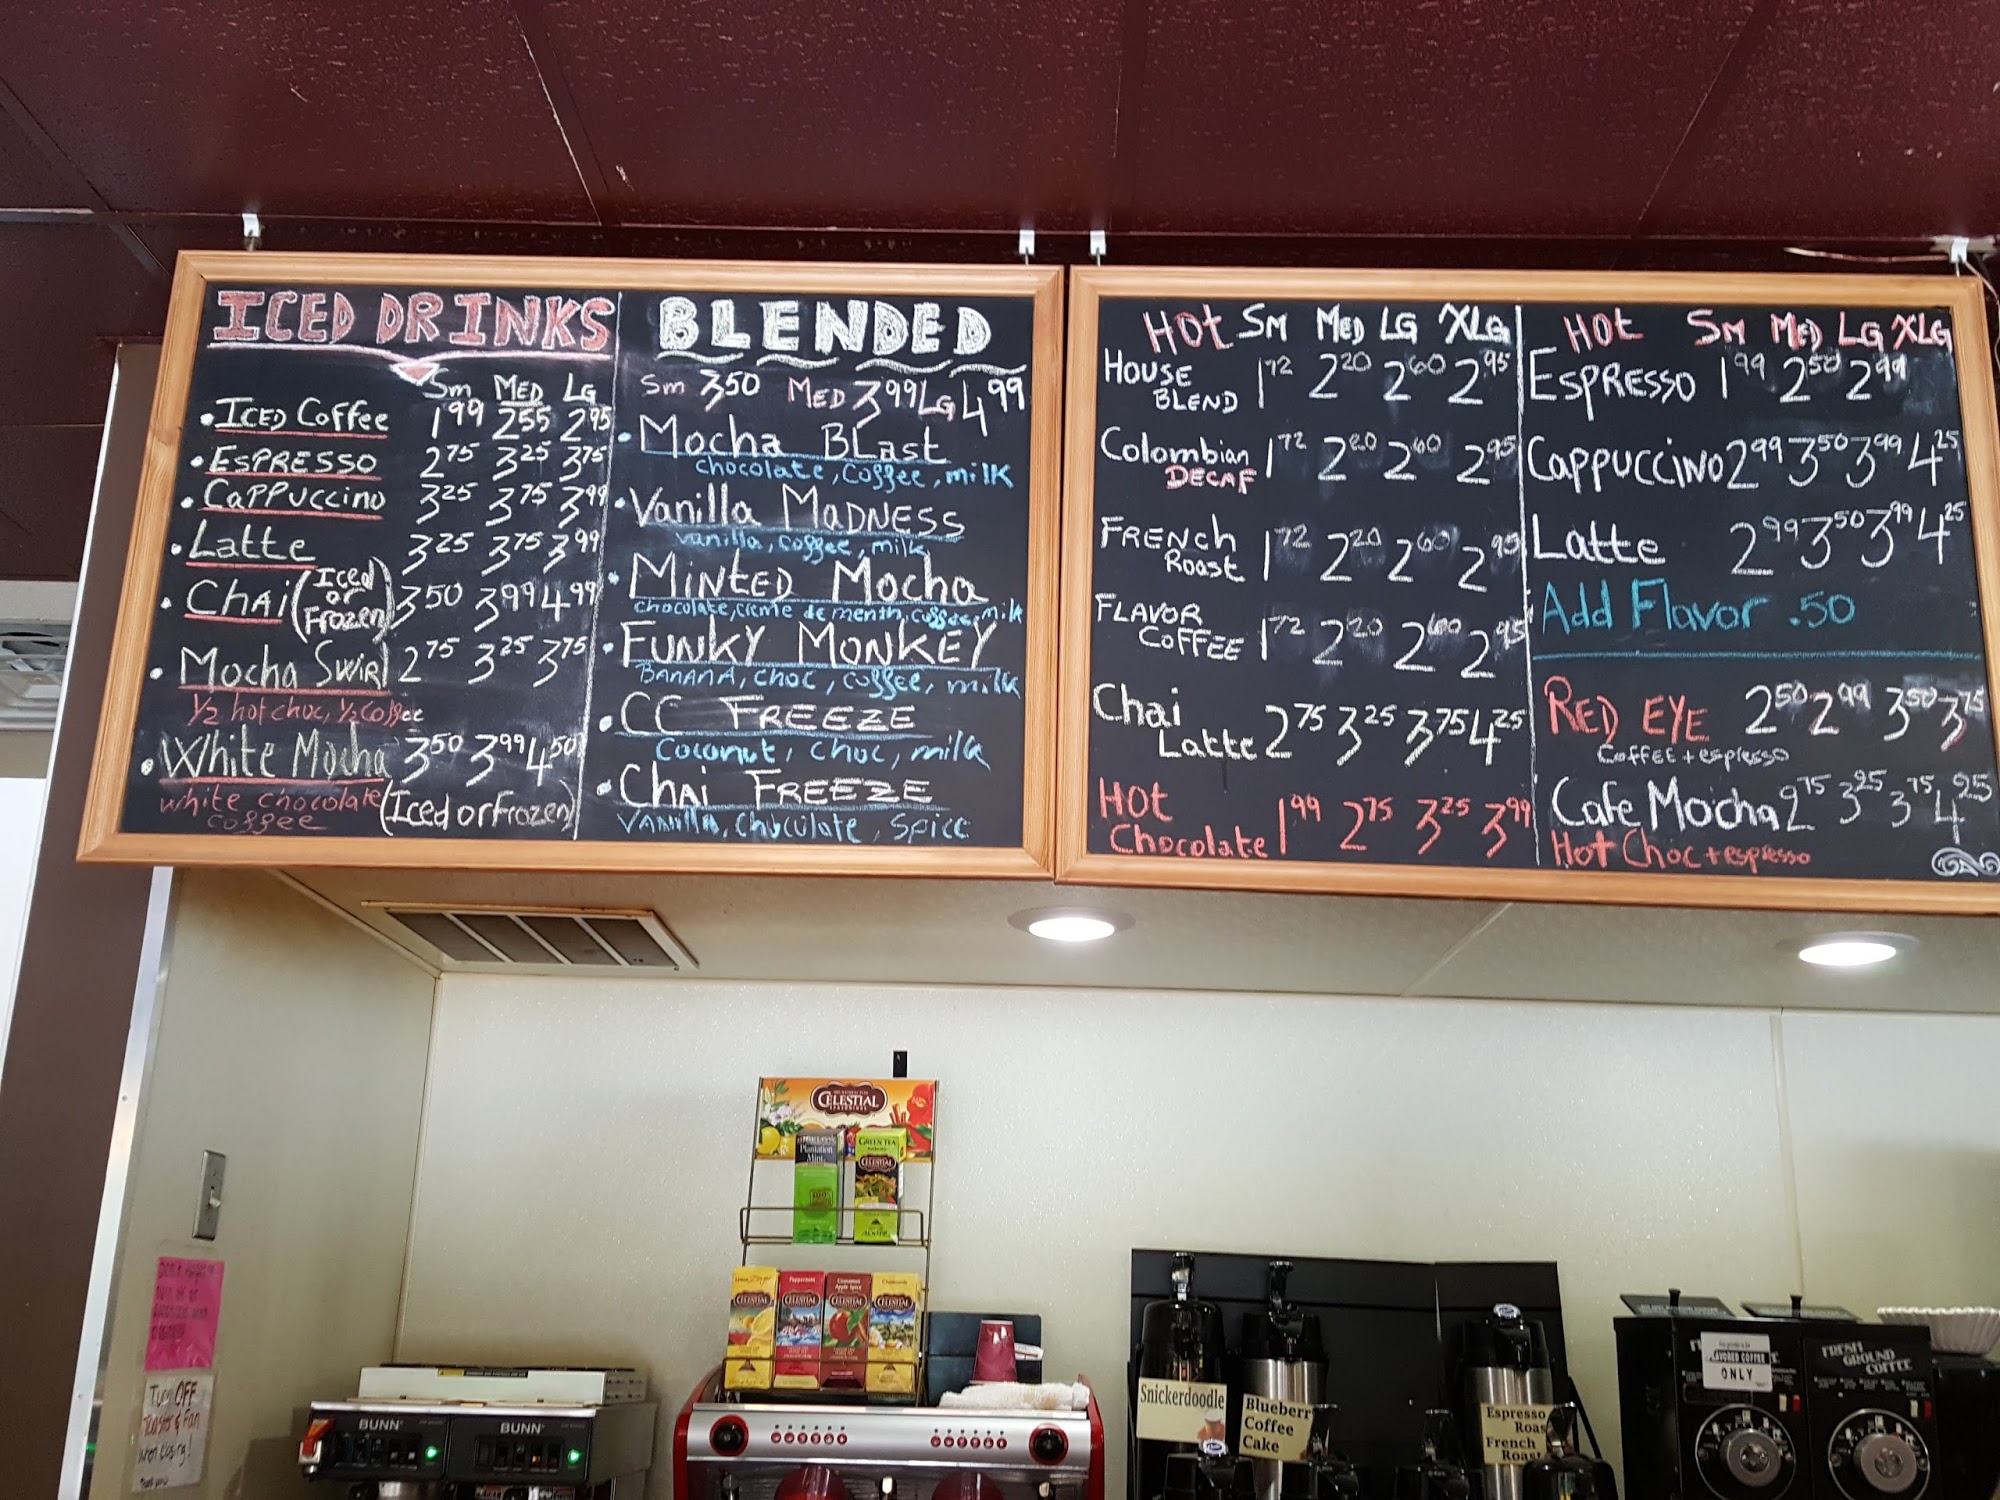 ICED DRINKS
Sm MED LG
• ICED Coffee 1.99 2.55 2.95
• ESPRESSO 2.75 3.25 3.75
• CAPPUCCINO 3.25 3.75 3.99
• Latte 3.25 3.75 3.99
• CHAI (Iced or Frozen) 3.50 3.99 4.99
• Mocha Swirl 2.75 3.25 3.75
1/2 hot choc, 1/2 coffee
• White Mocha 3.50 3.99 4.50
white chocolate (Iced or Frozen)
coffee
BLENDED
Sm 3.50 MED 3.99 LG 4.99
• Mocha BLast
chocolate, coffee, milk
• Vanilla MADNESS
vanilla, coffee, milk
• MINTED Mocha
chocolate, creme de menth, coffee, milk
• FUNKY MONKEY
BANANA, choc, coffee, milk
• CC FREEZE
Coconut, choc, milk
• CHAI FREEZE
VANILLA, chocolate, spice
HOt SM MED LG XLG
HOUSE BLEND 1.72 2.20 2.60 2.95
Colombian DECAF 1.72 2.20 2.60 2.95
FRENCH Roast 1.72 2.20 2.60 2.95
FLAVOR COFFEE 1.72 2.20 2.60 2.95
Chai Latte 2.75 3.25 3.75 4.25
HOt Chocolate 1.99 2.75 3.25 3.99
HOt SM MED LG XLG
ESPRESSO 1.99 2.50 2.99
CAPPUCCINO 2.99 3.50 3.99 4.25
Latte 2.99 3.50 3.99 4.25
Add Flavor .50
RED EYE 2.50 2.99 3.50 3.75
COFFEE + espresso
Cafe Mocha 2.75 3.25 3.75 4.25
Hot Choc + espresso
CELESTIAL
SEASONINGS
Plantation
Mint
GREEN TEA
CELESTIAL
Lemon Zinger
Peppermint
Cinnamon
Apple Spice
Chamomile
CELESTIAL
CELESTIAL
CELESTIAL
CELESTIAL
Turn OFF
Toaster & Fan
when closing!
BUNN
BUNN
Snickerdoodle
Blueberry
Coffee
Cake
Espresso
Roast
French
Roast
FLAVORED COFFEE
ONLY
FRESH
GROUND
COFFEE